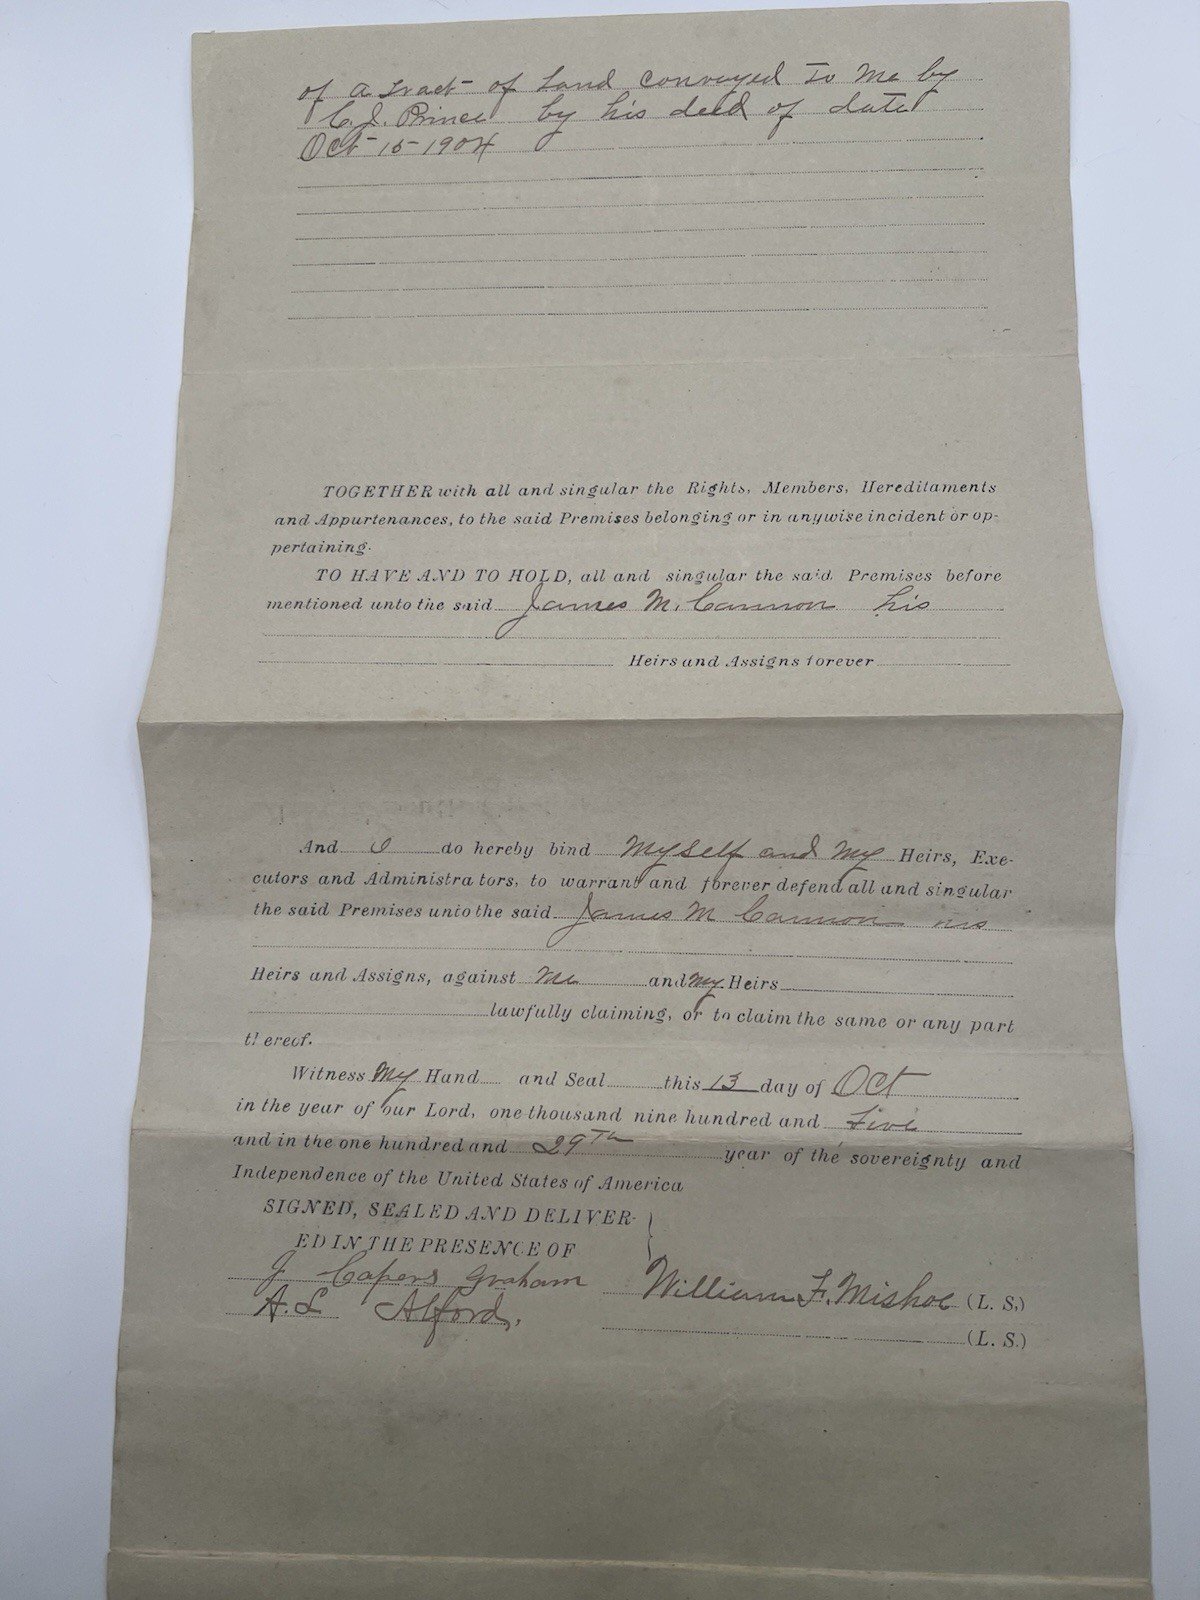 of a tract of Land conveyed to me by
C. J. Prince by his deed of date
Oct 15-1904
TOGETHER with all and singular the Rights, Members, Hereditaments
and Appurtenances, to the said Premises belonging or in anywise incident or op-
pertaining.
TO HAVE AND TO HOLD, all and singular the said Premises before
mentioned unto the said James M. Cannon his
Heirs and Assigns forever
And I do hereby bind Myself and My Heirs, Exe-
cutors and Administrators, to warrant and forever defend all and singular
the said Premises unto the said James M Cannon his
Heirs and Assigns, against me and my Heirs
lawfully claiming, or to claim the same or any part
thereof.
Witness My Hand and Seal this 13 day of Oct
in the year of our Lord, one thousand nine hundred and five
and in the one hundred and 29th year of the sovereignty and
Independence of the United States of America
SIGNED, SEALED AND DELIVER-
ED IN THE PRESENCE OF
J Capers Graham William F. Mishoe (L. S.)
A. L Alford. (L. S.)